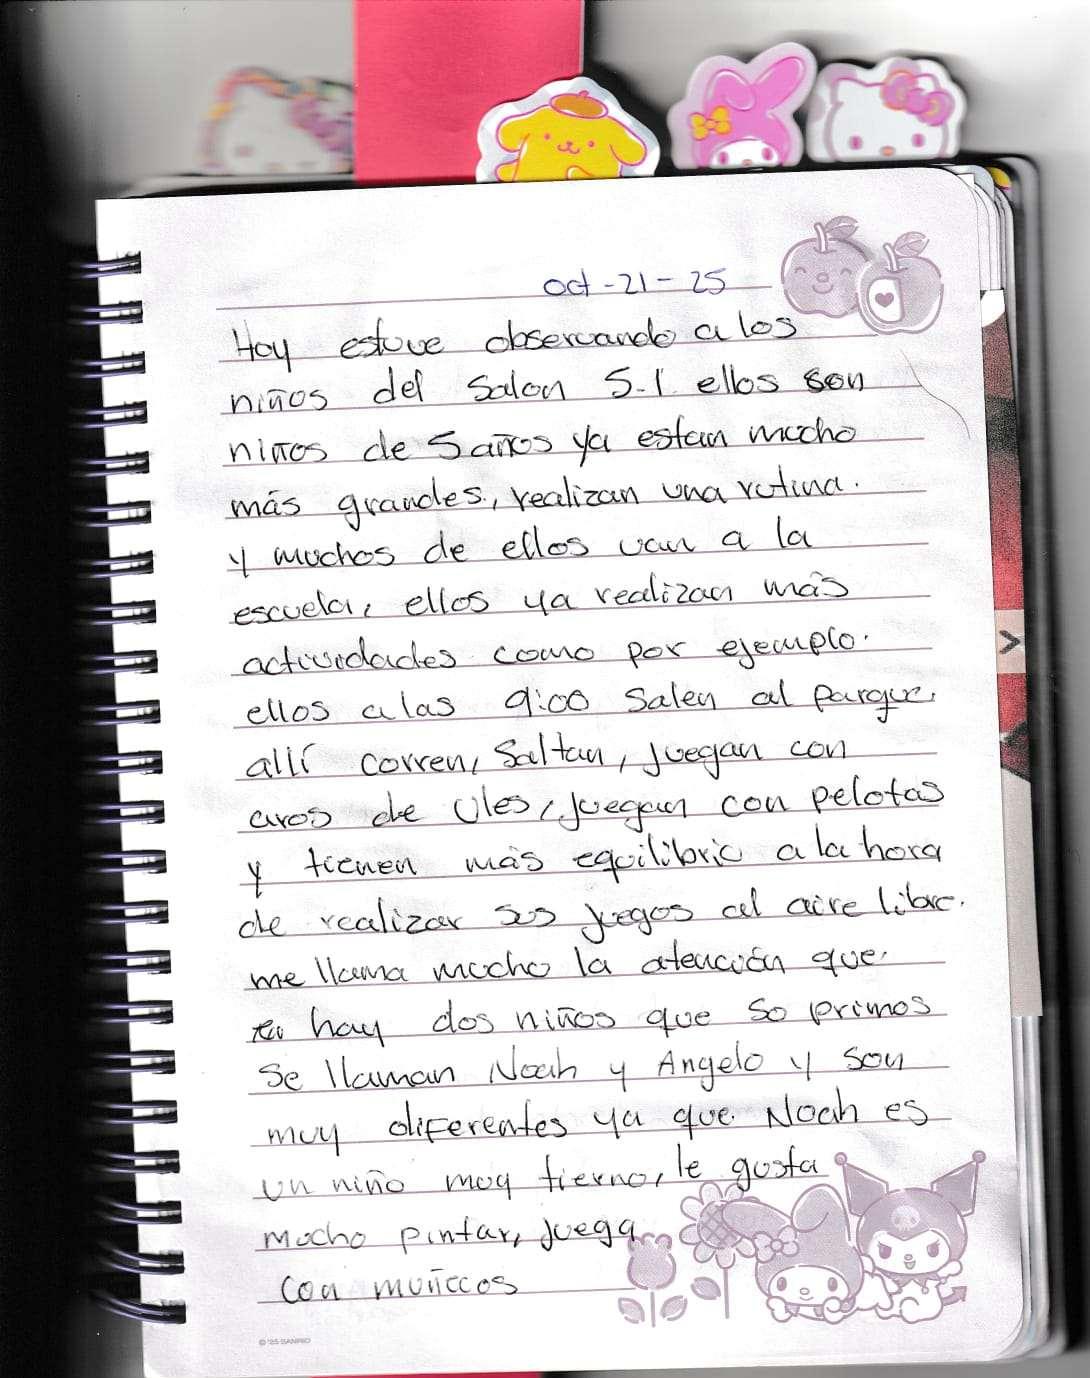 oct-21-25
Hoy estuve observando a los
niños del Salon 5-1. ellos son
niños de 5 años ya estan mucho
más grandes, realizan una rutina.
y muchos de ellos van a la
escuela, ellos ya realizan más
actividades como por ejemplo.
ellos a las 9:00 Salen al parque.
allí corren, Saltan, juegan con
aros de Ules, juegan con pelotas
y tienen más equilibrio a la hora
de realizar sus juegos al aire libre.
me llama mucho la atención que.
hay dos niños que so primos
Se llaman Noah y Angelo y son
muy diferentes ya que Noah es
un niño muy tierno, le gusta
mucho pintar, juega
con muñecos
© '25 SANRIO